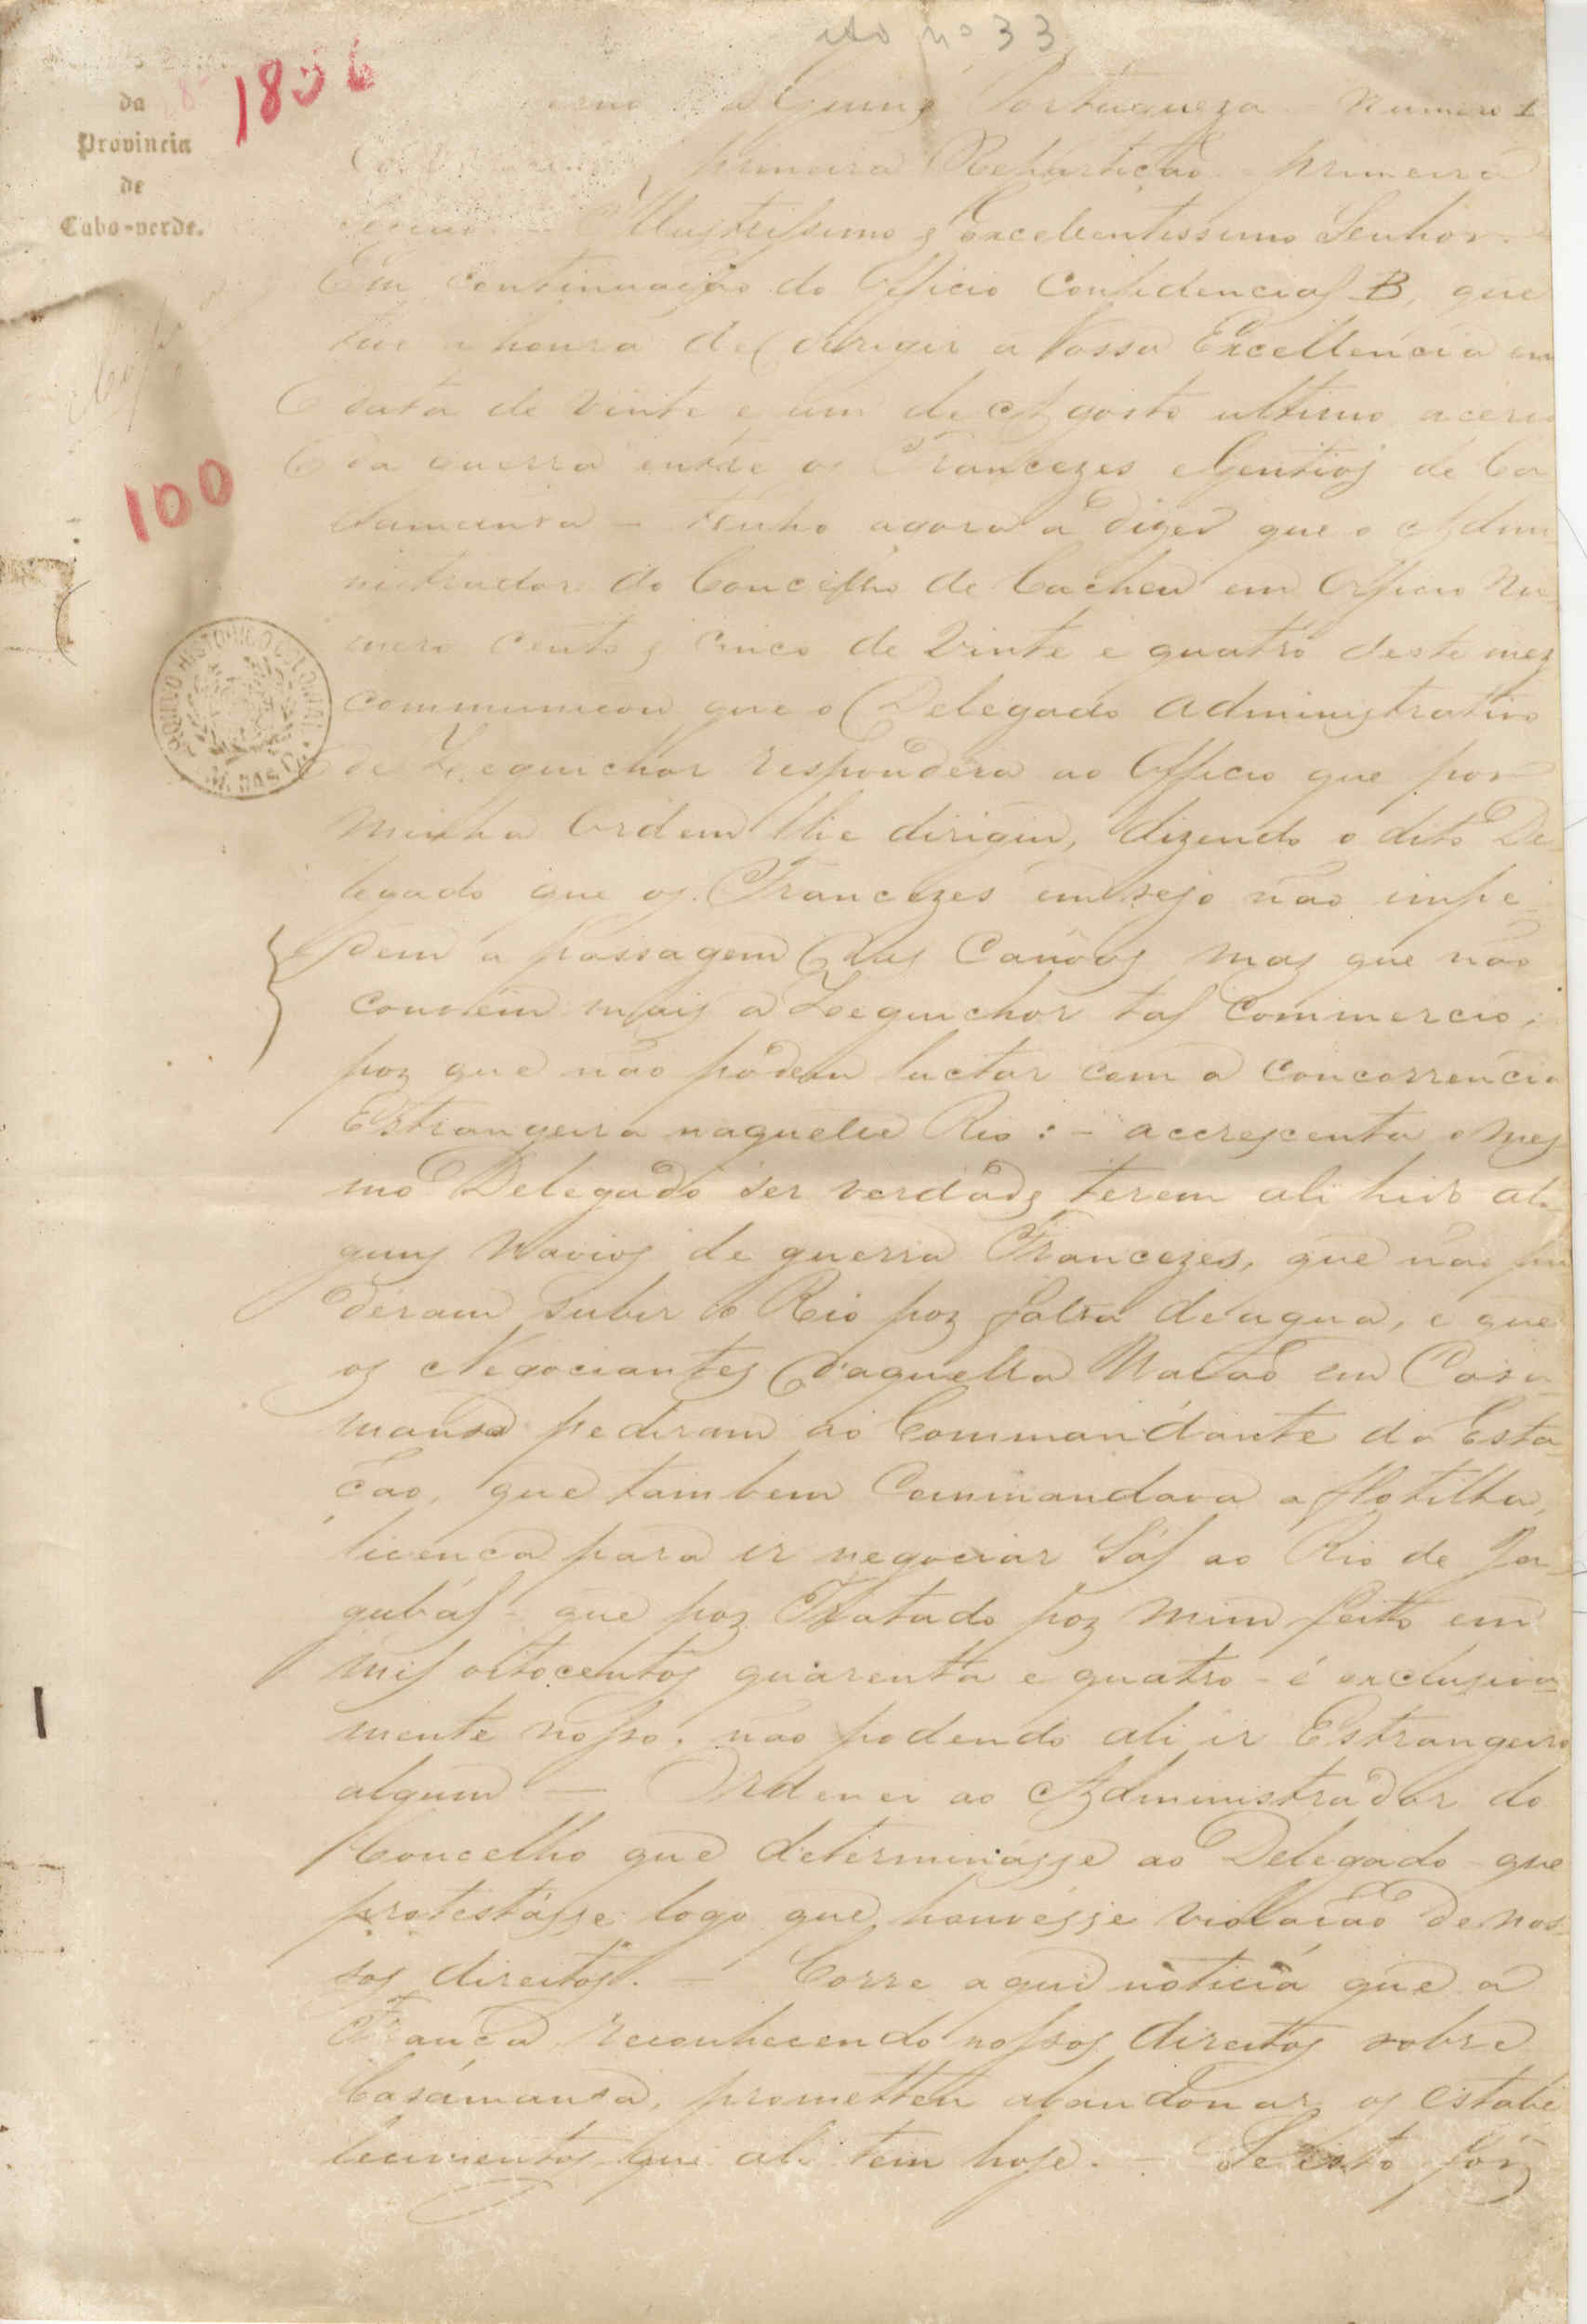 nº 33
da
Provincia
de
Cabo-verde.
1856
Guiné Portugueza Numero 1
primeira Repartição primeira
Illustrissimo e Excellentissimo Senhor.
Em continuação do Officio Confidencial B, que
tive a honra de dirigir a Vossa Excellencia em
data de vinte e um de Agosto ultimo acerca
da guerra entre os Francezes e Gentios de Ca
samansa - tenho agora a dizer que o Admi
nistrador do Concelho de Cacheu em Officio Nu
mero cento e cinco de vinte e quatro deste mez
communicou que o Delegado administrativo
de Zeguichor respondera ao Officio que por
minha Ordem lhe dirigiu, dizendo o dito De
legado que os Francezes em Sejo não impe
dem a passagem das Canôas mas que não
convém mais a Zeguichor tal commercio,
por que não pódem luctar com a concorrencia
Estrangeira naquelle Rio : - accrescenta o mes
mo Delegado ser verdade terem ali hido al
guns Navios de guerra Francezes, que não pu
déram subir o Rio por falta de agua, e que
os Negociantes d'aquella Nação em Casa
mansa pediram ao Commandante da Esta
ção, que tambem Commandava a flotilha,
licença para ir negociar Sal ao Rio de Ja
gubál - que por Tratado por mim feito em
mil oitocentos quarenta e quatro - é exclusiva
mente nosso, não podendo ali ir Estrangeiro
algum — Ordenei ao Administrador do
Concelho que determinásse ao Delegado que
protestásse logo que houvésse violação de nos
sos direitos. — Corre aqui noticia que a
França reconhecendo nossos direitos sobre
Casamansa, prometteu abandonar os estabe
lecimentos que ali tem hoje. - Se isto fôr
100
ARQUIVO HISTÓRICO COLONIAL